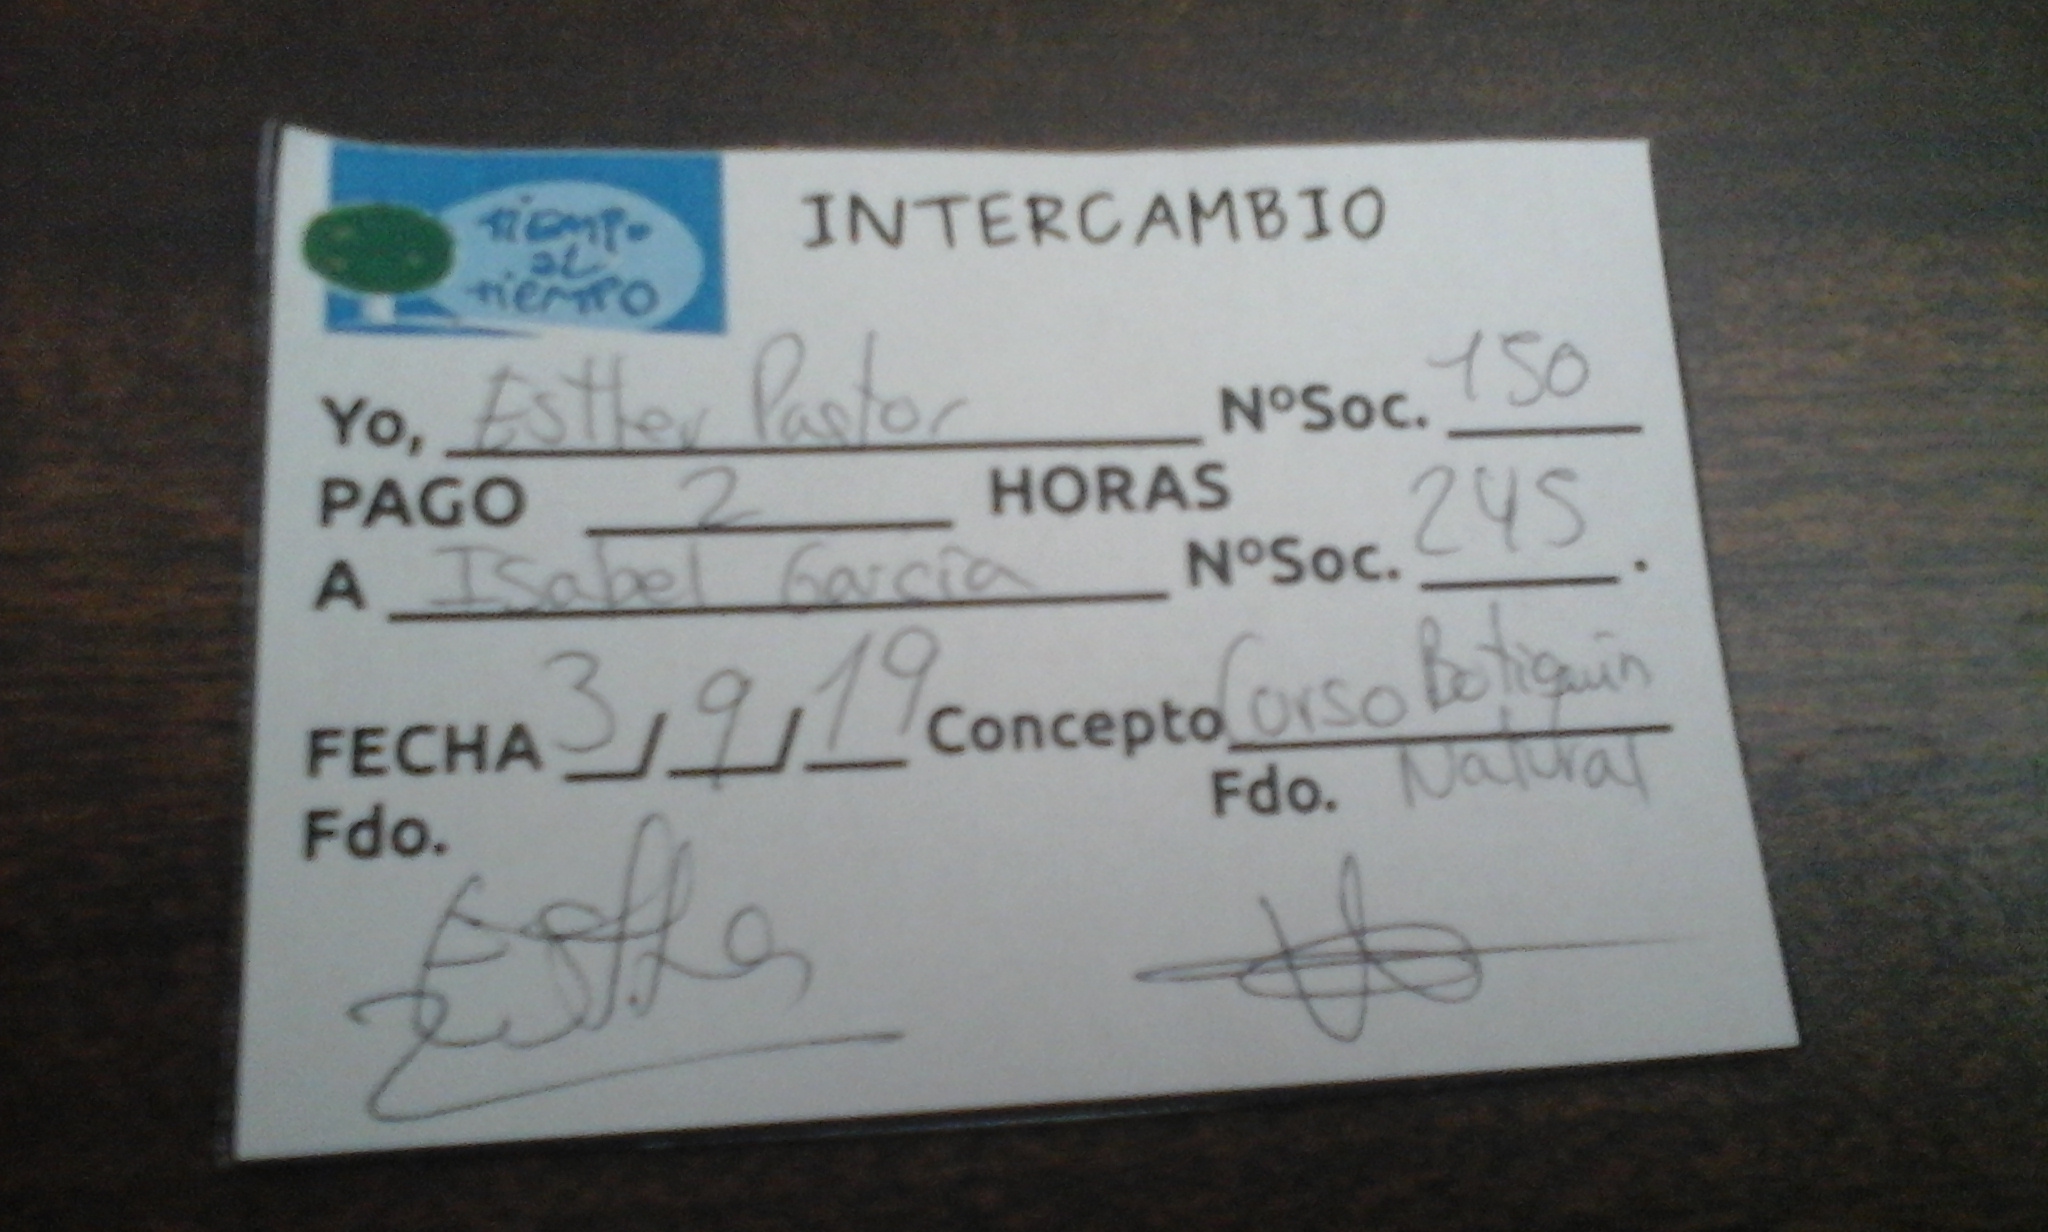 tiempo
al
tiempo
INTERCAMBIO
Yo, Esther Pastor NºSoc. 150
PAGO 2 HORAS
A Isabel García NºSoc. 245.
FECHA 3/9/19 Concepto Curso Botiquín
Natural
Fdo. Fdo.
Esther